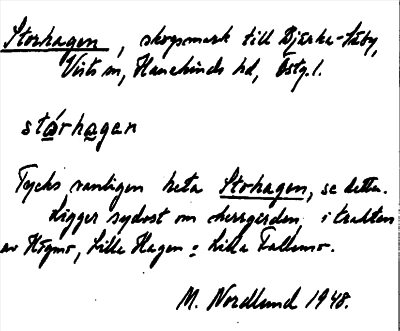 Storhagen, skogsmark till Bjärka-Säby,
Vists sn, Hanekinds hd, Östg. l.
stårhagen
Tycks vanligen heta Storhagen, se detta.
Ligger sydost om herrgården, i trakten
av Högmo, Lille Hagen o Lilla Fallemo.
M. Nordlund 1948.